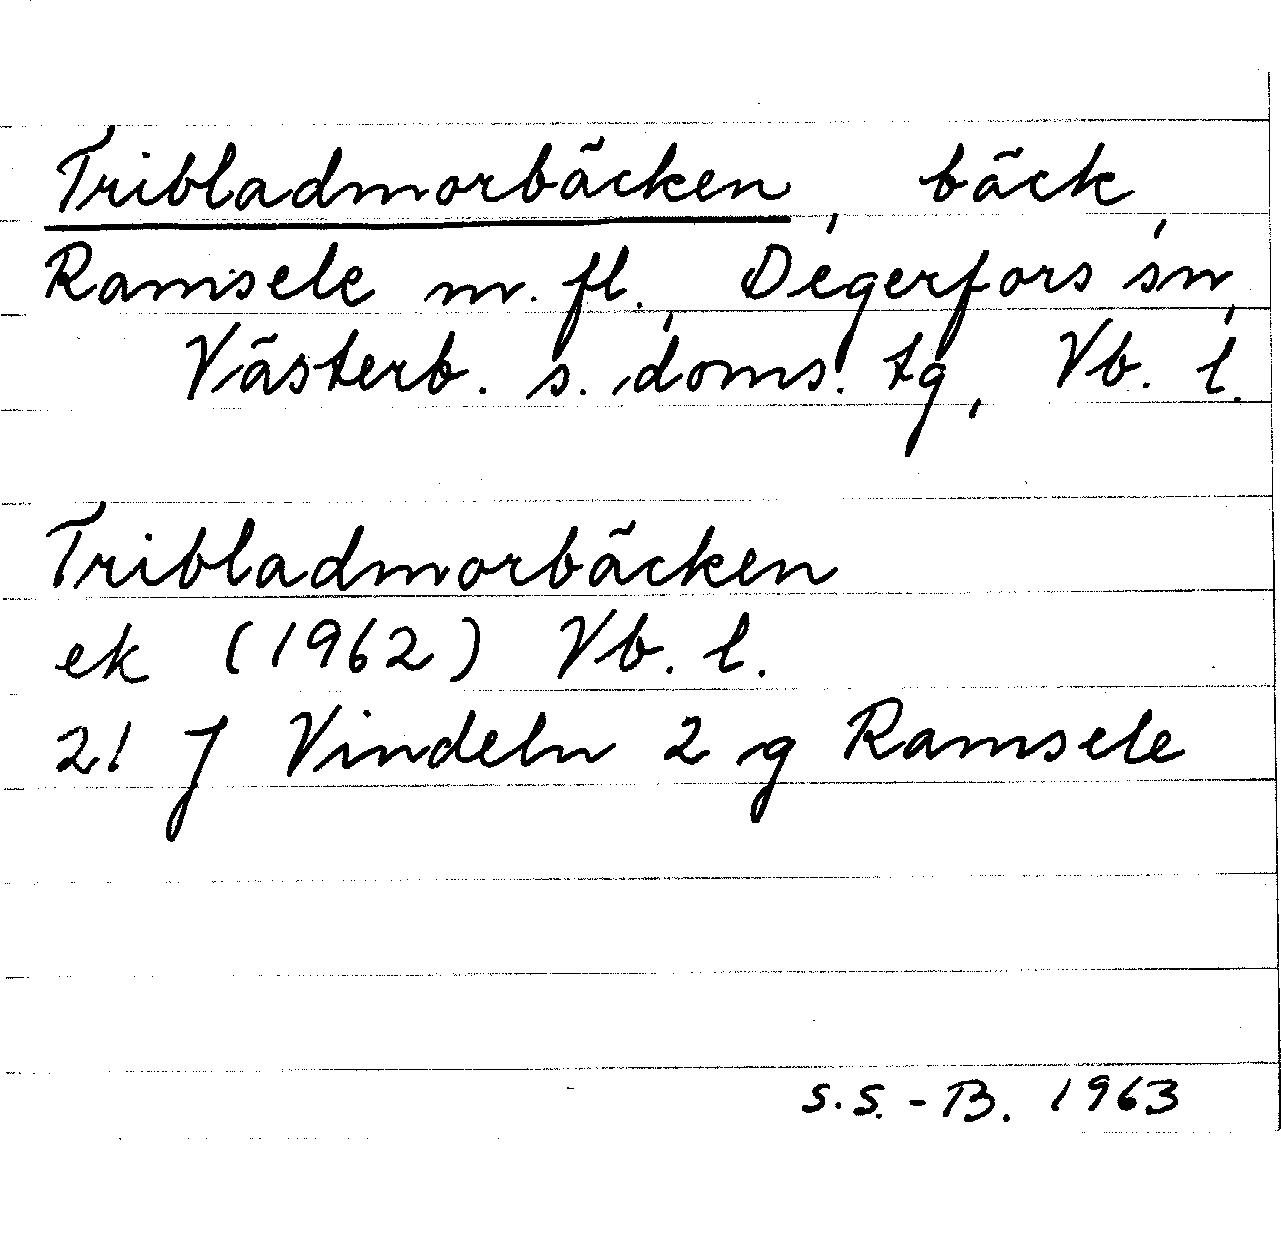 Tribladmorbäcken, bäck,
Ramsele m. fl., Degerfors sn,
Västerb. s. doms. tg, Vb. l.
Tribladmorbäcken
ek (1962) Vb. l.
21 J Vindeln 2 g Ramsele
S.S.-B. 1963